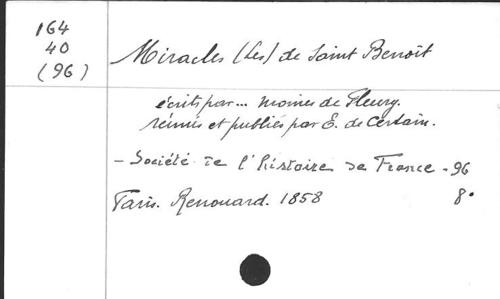 164
40
(96)
Miracles (Les) de Saint Benoît
écrits par... moines de Fleury.
réunis et publiés par E. de Certain.
- Société de l'histoire de France - 96
Paris. Renouard. 1858 8°